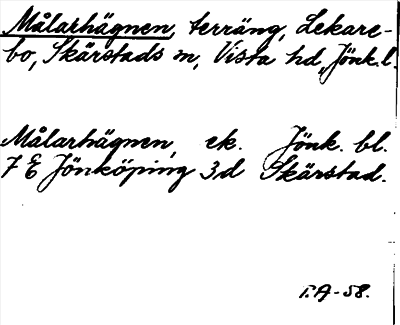 Målarhägnen, terräng, Lekare-
bo, Skärstads sn, Vista hd, Jönk.l.
Målarhägnen, ek. Jönk. bl.
7 E Jönköping 3d Skärstad.
T.A-58.